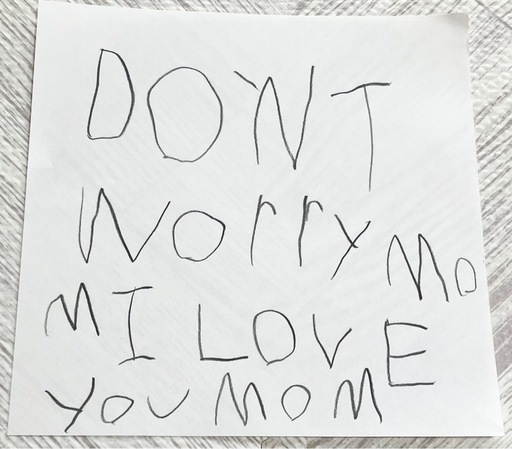 DON'T
Worry Mo
M I LOVE
YOU MOM